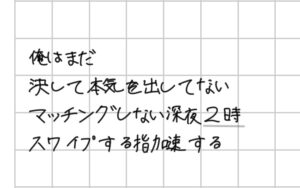 俺はまだ
決して本気を出してない
マッチングしない深夜2時
スワイプする指加速する